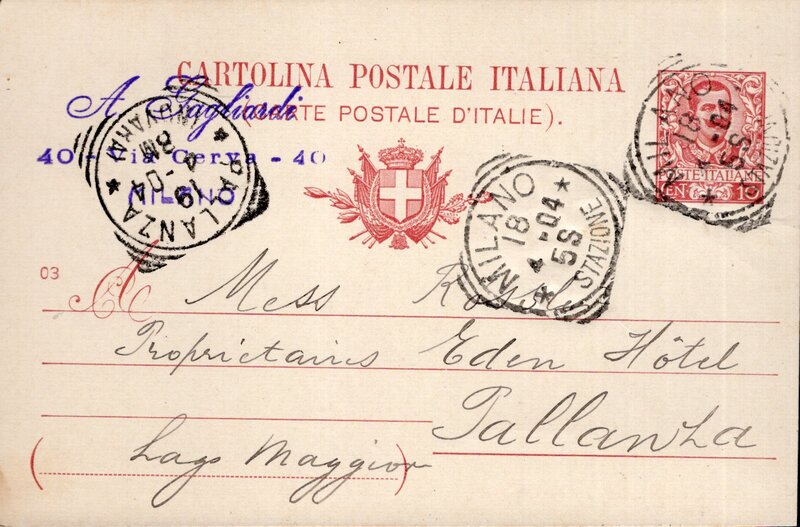 CARTOLINA POSTALE ITALIANA
(CARTE POSTALE D'ITALIE).
A. Tagliardi
40 - Via Cerva - 40
MILANO
* PALLANZA *
(NOVARA)
19
4-04
8M
MILANO
18
4-04
5S
* STAZIONE *
MILANO
18
4-04
5S
STAZIONE
POSTE ITALIANE
CENT 10
03
A
Mess
Proprietaires Eden Hôtel
Pallanza
(Lago Maggiore)